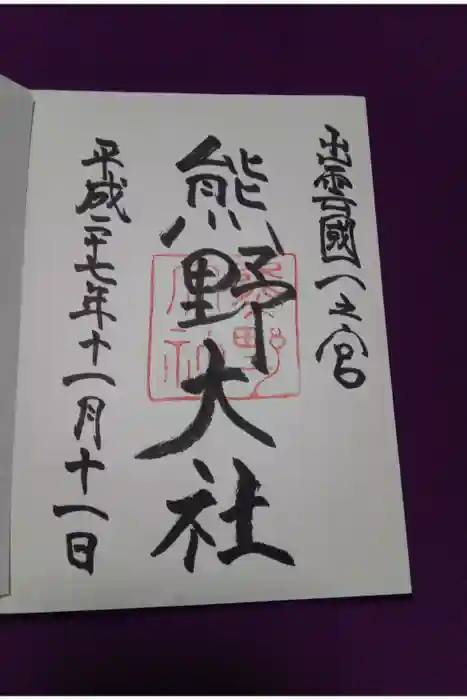 出雲國一之宮
熊野大社
熊野大社
平成二十七年十一月十一日